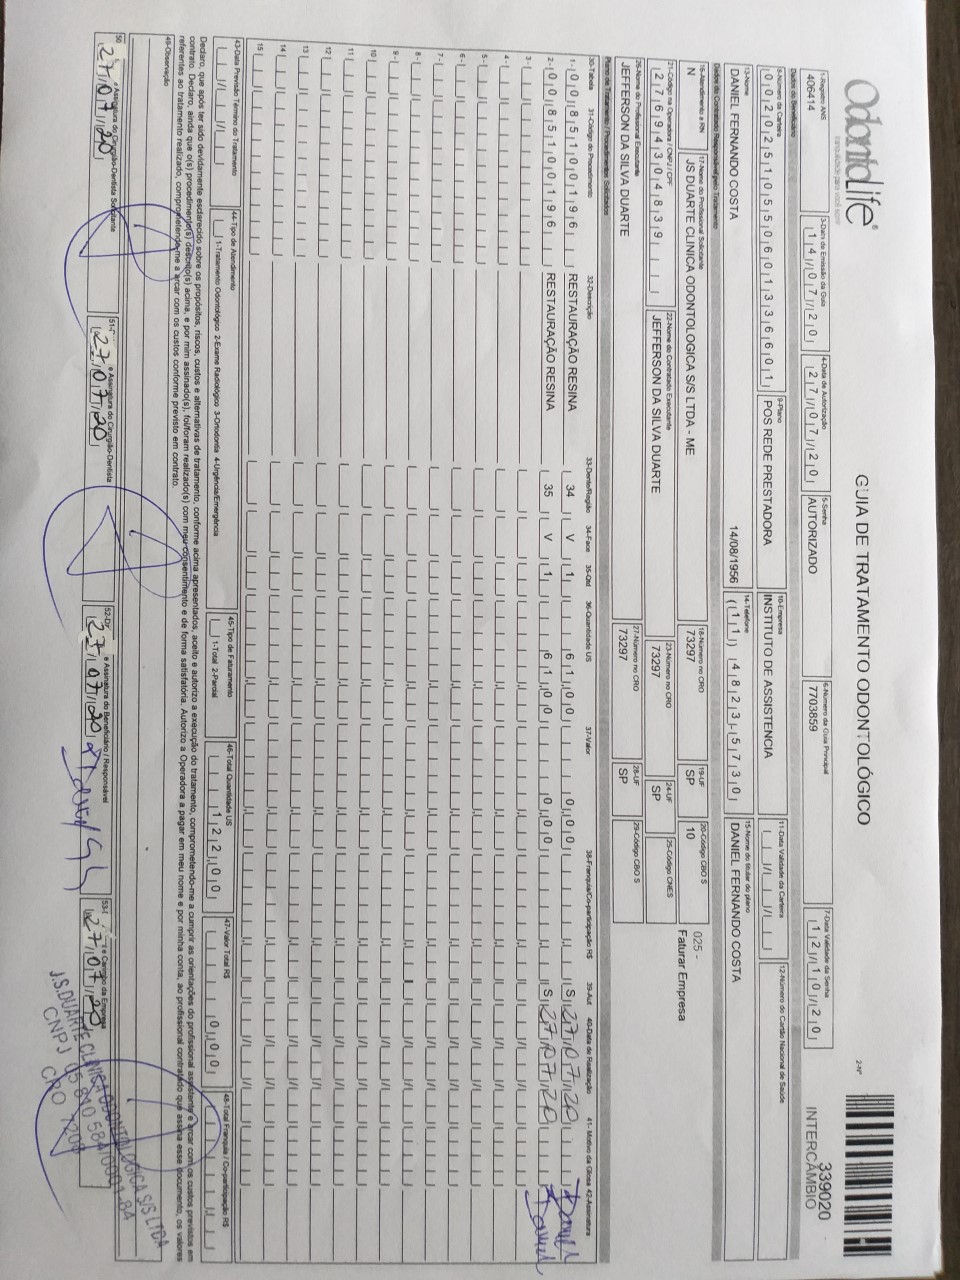 OdontoLife®
GUIA DE TRATAMENTO ODONTOLÓGICO
2-Nº
339020
INTERCÂMBIO
1-Registro ANS
406414
3-Data de Emissão da Guia
14/07/20
4-Data de Autorização
27/07/20
5-Senha
AUTORIZADO
6-Número da Guia Principal
7703859
7-Data Validade da Senha
12/10/20
Dados do Beneficiário
8-Número da Carteira
00202510550601133660​1
9-Plano
POS REDE PRESTADORA
10-Empresa
INSTITUTO DE ASSISTENCIA
11-Data Validade da Carteira
12-Número do Cartão Nacional de Saúde
13-Nome
DANIEL FERNANDO COSTA
14/08/1956
14-Telefone
(11) 4823-5730
15-Nome do titular do plano
DANIEL FERNANDO COSTA
Dados do Contratado Responsável pelo Tratamento
16-Atendimento a RN
N
17-Nome do Profissional Solicitante
JS DUARTE CLINICA ODONTOLOGICA S/S LTDA - ME
18-Número no CRO
73297
19-UF
SP
20-Código CBO S
10
025 -
Faturar Empresa
21-Código na Operadora / CNPJ / CPF
27694304839
22-Nome do Contratado Executante
JEFFERSON DA SILVA DUARTE
23-Número no CRO
73297
24-UF
SP
25-Código CNES
26-Nome do Profissional Executante
JEFFERSON DA SILVA DUARTE
27-Número no CRO
73297
28-UF
SP
29-Código CBO S
Plano de Tratamento / Procedimentos Solicitados
30-Tabela 31-Código do Procedimento 32-Descrição 33-Dente/Região 34-Face 35-Qtd 36-Quantidade US 37-Valor 38-Franquia/Co-participação R$ 39-Aut 40-Data de Realização 41- Motivo da Glosa 42-Assinatura
1- 00 85100196 RESTAURAÇÃO RESINA 34 V 1 61,00 0,00 S 27/07/20 Daniel
2- 00 85100196 RESTAURAÇÃO RESINA 35 V 1 61,00 0,00 S 27/07/20 Daniel
3-
4-
5-
6-
7-
8-
9-
10
11
12
13
14
15
43-Data Previsão Término do Tratamento
44-Tipo de Atendimento
1-Tratamento Odontológico 2-Exame Radiológico 3-Ortodontia 4-Urgência/Emergência
45-Tipo de Faturamento
1-Total 2-Parcial
46-Total Quantidade US
122,00
47-Valor Total R$
0,00
48-Total Franquia / Co-participação R$
Declaro, que após ter sido devidamente esclarecido sobre os propósitos, riscos, custos e alternativas de tratamento, conforme acima apresentados, aceito e autorizo a execução do tratamento, comprometendo-me a cumprir as orientações do profissional assistente e arcar com os custos previstos em
contrato. Declaro, ainda que o(s) procedimento(s) descrito(s) acima, e por mim assinado(s), foi/foram realizado(s) com meu consentimento e de forma satisfatória. Autorizo a Operadora a pagar em meu nome e por minha conta, ao profissional contratado que assina esse documento, os valores
referentes ao tratamento realizado, comprometendo-me a arcar com os custos conforme previsto em contrato.
49-Observação
50 Assinatura do Cirurgião-Dentista Solicitante
27/07/20
51- e Assinatura do Cirurgião-Dentista
27/07/20
52- e Assinatura do Beneficiário / Responsável
27/07/20
53- e Carimbo da Empresa
27/07/20
J.S.DUARTE CLINICA ODONTOLOGICA S/S LTDA
CNPJ
CRO